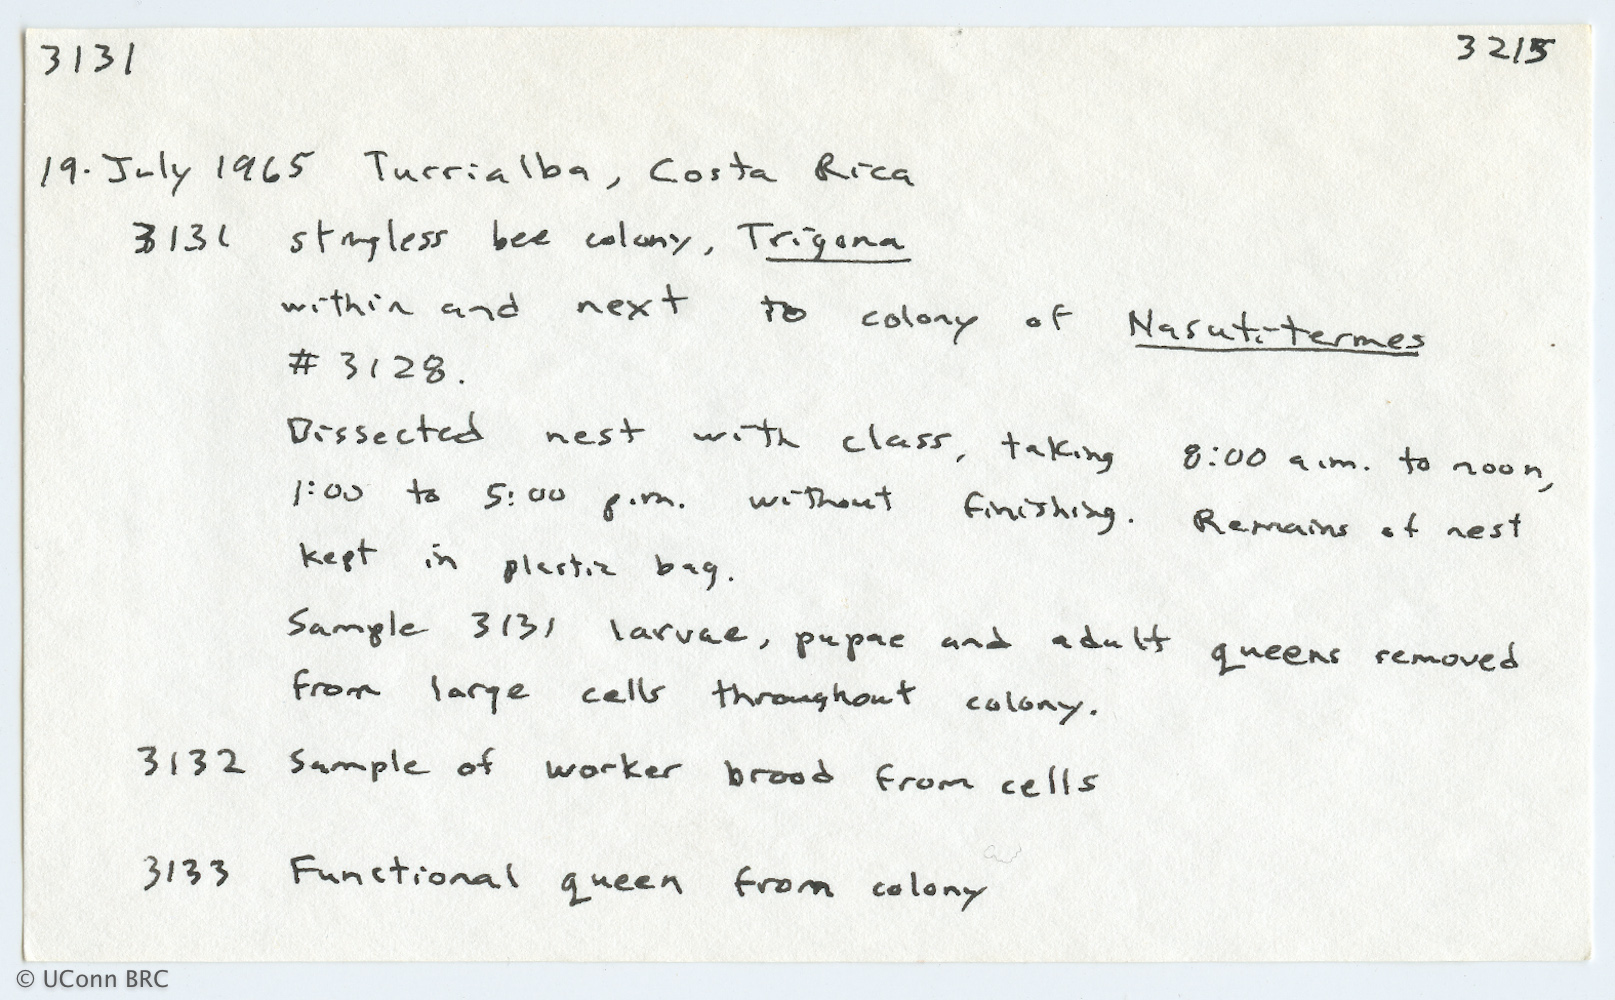 3131 3215
19. July 1965 Turrialba, Costa Rica
3131 stingless bee colony, Trigona
within and next to colony of Nasutitermes
# 3128.
Dissected nest with class, taking 8:00 a.m. to noon,
1:00 to 5:00 p.m. without finishing. Remains of nest
kept in plastic bag.
Sample 3131 larvae, pupae and adult queens removed
from large cells throughout colony.
3132 Sample of worker brood from cells
3133 Functional queen from colony
© UConn BRC